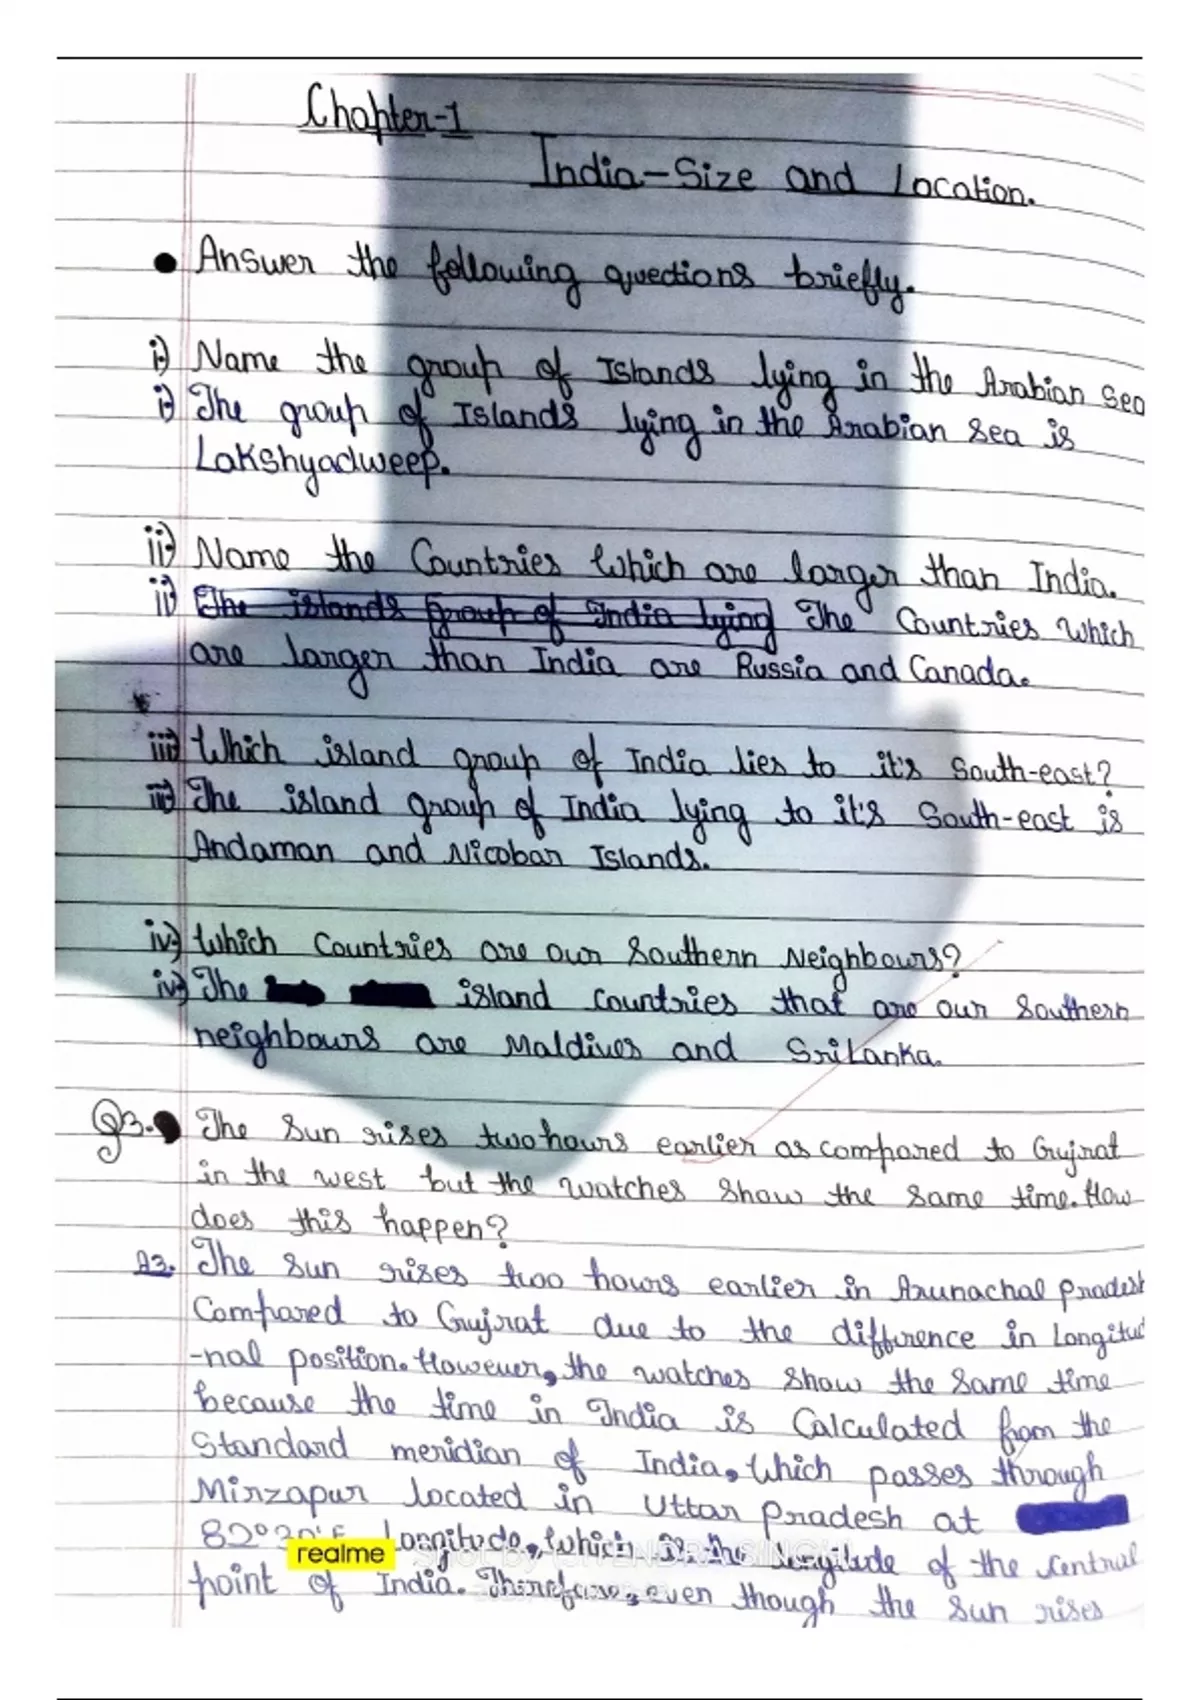 Chapter-1
India-Size and Location.
Answer the following questions briefly.
i) Name the group of Islands lying in the Arabian Sea
i) The group of Islands lying in the Arabian Sea is
Lakshyadweep.
ii) Name the Countries which are larger than India.
ii) The islands group of India lying The Countries which
are larger than India are Russia and Canada.
iii) Which island group of India lies to it's South-east?
iii) The island group of India lying to it's South-east is
Andaman and Nicobar Islands.
iv) Which Countries are our Southern Neighbours?
iv) The island countries that are our Southern
neighbours are Maldives and SriLanka.
Q3. The Sun rises two hours earlier as compared to Gujrat
in the west but the watches show the same time. How
does this happen?
A3. The Sun rises two hours earlier in Arunachal Pradesh
Compared to Gujrat due to the difference in Longitud
-nal position. However, the watches show the same time
because the time in India is Calculated from the
Standard meridian of India, which passes through
Mirzapur located in Uttar Pradesh at
82°30'E Longitude, which is the longitude of the Central
realme
point of India. Therefore, even though the Sun rises